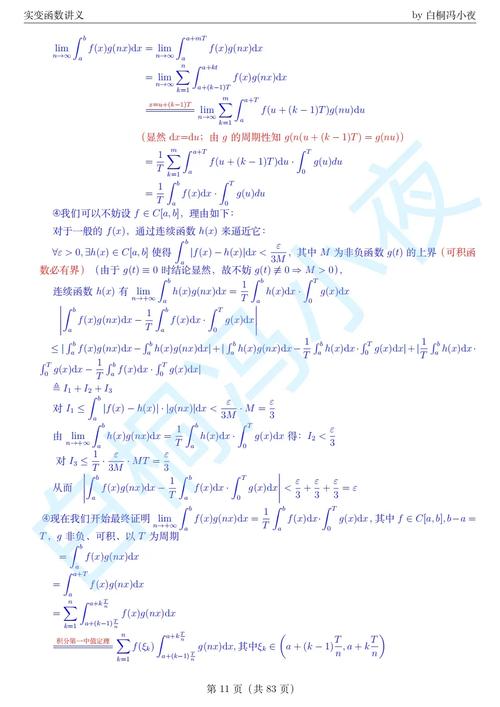 实变函数讲义 by 白桐冯小夜
lim_{n→∞} ∫_a^b f(x)g(nx)dx = lim_{n→∞} ∫_a^{a+mT} f(x)g(nx)dx
= lim_{n→∞} ∑_{k=1}^n ∫_{a+(k−1)T}^{a+kt} f(x)g(nx)dx
x=u+(k−1)T lim_{n→∞} ∑_{k=1}^m ∫_a^{a+T} f(u + (k − 1)T)g(nu)du
(显然 dx=du；由 g 的周期性知 g(n(u + (k − 1)T) = g(nu))
= 1/T ∑_{k=1}^m ∫_a^{a+T} f(u + (k − 1)T)du · ∫_0^T g(u)du
= 1/T ∫_a^b f(x)dx · ∫_0^T g(u)du
④我们可以不妨设 f ∈ C[a, b]，理由如下：
对于一般的 f(x)，通过连续函数 h(x) 来逼近它：
∀ε > 0, ∃h(x) ∈ C[a, b] 使得 ∫_a^b |f(x) − h(x)|dx < ε/3M，其中 M 为非负函数 g(t) 的上界（可积函
数必有界）（由于 g(t) ≡ 0 时结论显然，故不妨 g(t) ≢ 0 ⇒ M > 0），
连续函数 h(x) 有 lim_{n→+∞} ∫_a^b h(x)g(nx)dx = 1/T ∫_a^b h(x)dx · ∫_0^T g(x)dx
|∫_a^b f(x)g(nx)dx − 1/T ∫_a^b f(x)dx · ∫_0^T g(x)dx|
≤ |∫_a^b f(x)g(nx)dx − ∫_a^b h(x)g(nx)dx| + |∫_a^b h(x)g(nx)dx − 1/T ∫_a^b h(x)dx · ∫_0^T g(x)dx| + |1/T ∫_a^b h(x)dx ·
∫_0^T g(x)dx − 1/T ∫_a^b f(x)dx · ∫_0^T g(x)dx|
≜ I₁ + I₂ + I₃
对 I₁ ≤ ∫_a^b |f(x) − h(x)| · |g(nx)|dx < ε/3M · M = ε/3
由 lim_{n→+∞} ∫_a^b h(x)g(nx)dx = 1/T ∫_a^b h(x)dx · ∫_0^T g(x)dx 得：I₂ < ε/3
对 I₃ ≤ 1/T · ε/3M · MT = ε/3
从而 |∫_a^b f(x)g(nx)dx − 1/T ∫_a^b f(x)dx · ∫_0^T g(x)dx| < ε/3 + ε/3 + ε/3 = ε
④现在我们开始最终证明 lim_{n→+∞} ∫_a^b f(x)g(nx)dx = 1/T ∫_a^b f(x)dx · ∫_0^T g(x)dx，其中 f ∈ C[a, b], b − a =
T，g 非负、可积、以 T 为周期
= ∫_a^b f(x)g(nx)dx
= ∫_a^{a+T} f(x)g(nx)dx
= ∑_{k=1}^n ∫_{a+(k−1)T/n}^{a+kT/n} f(x)g(nx)dx
积分第一中值定理 ∑_{k=1}^n f(ξ_k) ∫_{a+(k−1)T/n}^{a+kT/n} g(nx)dx, 其中ξ_k ∈ (a + (k − 1)T/n, a + kT/n)
第 11 页（共 83 页）
白桐冯小夜